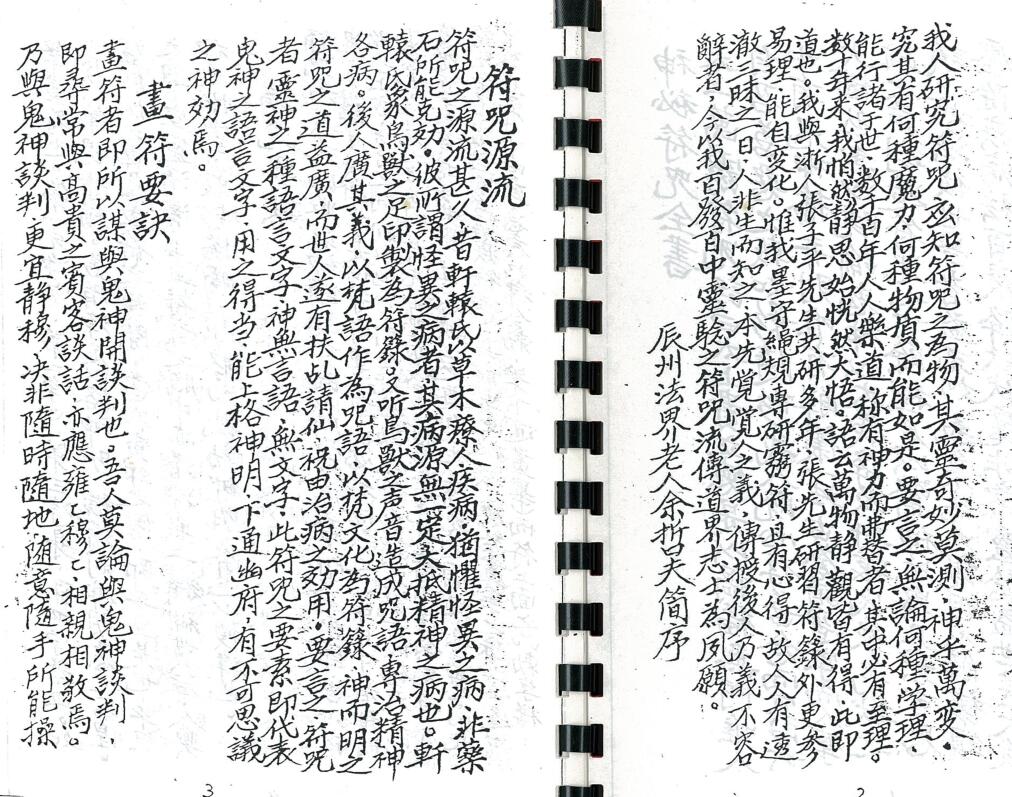 我人研究符咒玄知符咒之為物．其靈奇妙莫測．神乎萬変．
究其有何種魔力．何種物質．而能如是。要言之．無論何種学理．
能行諸于世．数千百年．人人樂道．称有神力而弗替者．其中必有至理。
数年來．我悄然静思．始恍然大悟。語云萬物静觀皆有得．此即
道也。我與浙人張子平先生共研多年．張先生研習符籙外更参
易理．能自変化。惟我墨守繩規．專研靈符．且有心得．故人人有透
澈三昧之一日．人非生而知之．本先覚覚人之義．傳授後人乃義不容
辭者．今以我百發百中靈驗之符咒流傳道界志士為夙願。
辰州法界老人余哲夫簡序
2
符咒源流
符咒之源流甚久．昔軒轅氏以草木療人疾病．猶懼怪異之病．非藥
石所能克効．彼所謂怪異之病者．其病源無一定．大抵精神之病也。軒
轅氏象鳥獸之足印製為符籙．又听鳥獸之声音造成咒語．專治精神
各病。後人廣其義．以梵語作為咒語．以梵文化為符籙．神而明之
符咒之道益廣．而世人遂有扶乩請仙．祝由治病之効用。要言之．符咒
者．靈神之一種語言文字．神無言語．無文字．此符咒之要素．即代表
鬼神之語言文字．用之得当．能上格神明．下通幽府．有不可思議
之神効焉。
畫符要訣
畫符者即所以謀與鬼神開談判也。吾人莫論與鬼神談判．
即尋常與高貴之賓客談話．亦應雍乙穆乙．相親相敬焉。
乃與鬼神談判．更宜静穆．决非隨時隨地．隨意隨手所能操
3